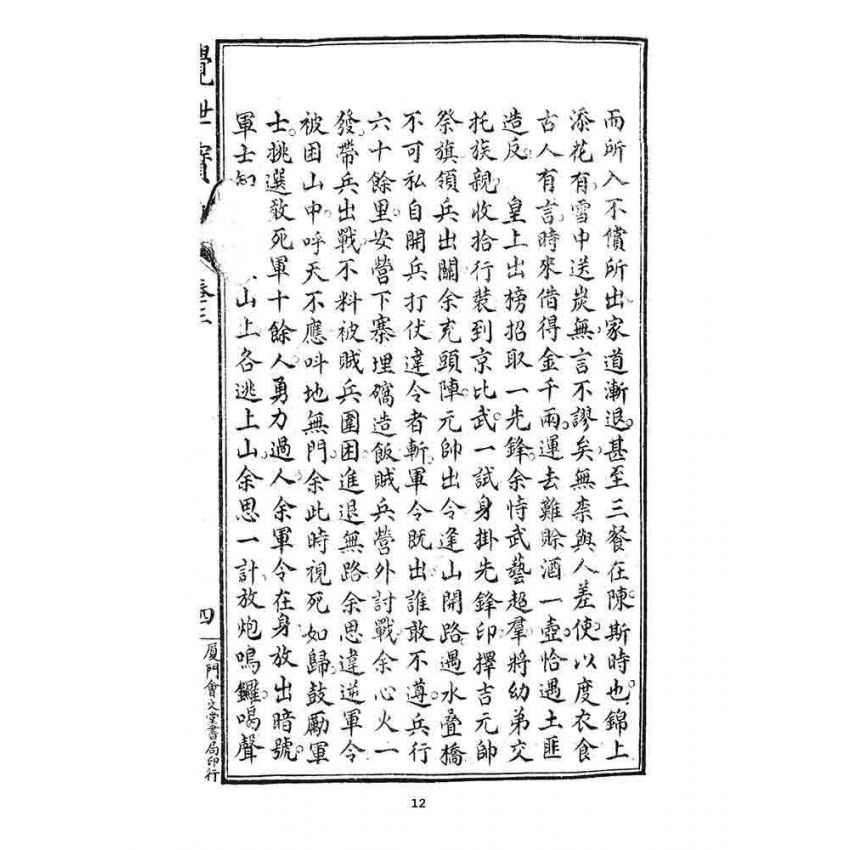 而所入不償所出家道漸退甚至三餐在陳斯時也錦上
添花有雪中送炭無言不謬矣無柰與人差使以度衣食
古人有言時來借得金千兩運去難賒酒一壺恰遇土匪
造反　皇上出榜招取一先鋒余恃武藝超羣將幼弟交
托族親收拾行裝到京比武一試身掛先鋒印擇吉元帥
祭旗領兵出關余充頭陣元帥出令逢山開路遇水叠橋
不可私自開兵打伏違令者斬軍令既出誰敢不遵兵行
六十餘里安營下寨埋鍋造飯賊兵營外討戰余心火一
發帶兵出戰不料被賊兵圍困進退無路余思違逆軍令
被困山中呼天不應呌地無門余此時視死如歸鼓勵軍
士挑選敎死軍十餘人勇力過人余軍令在身放出暗號
軍士知山上各逃上山余思一計放炮鳴鑼喝聲
覺世寶卷三
四
厦門會文堂書局印行
12